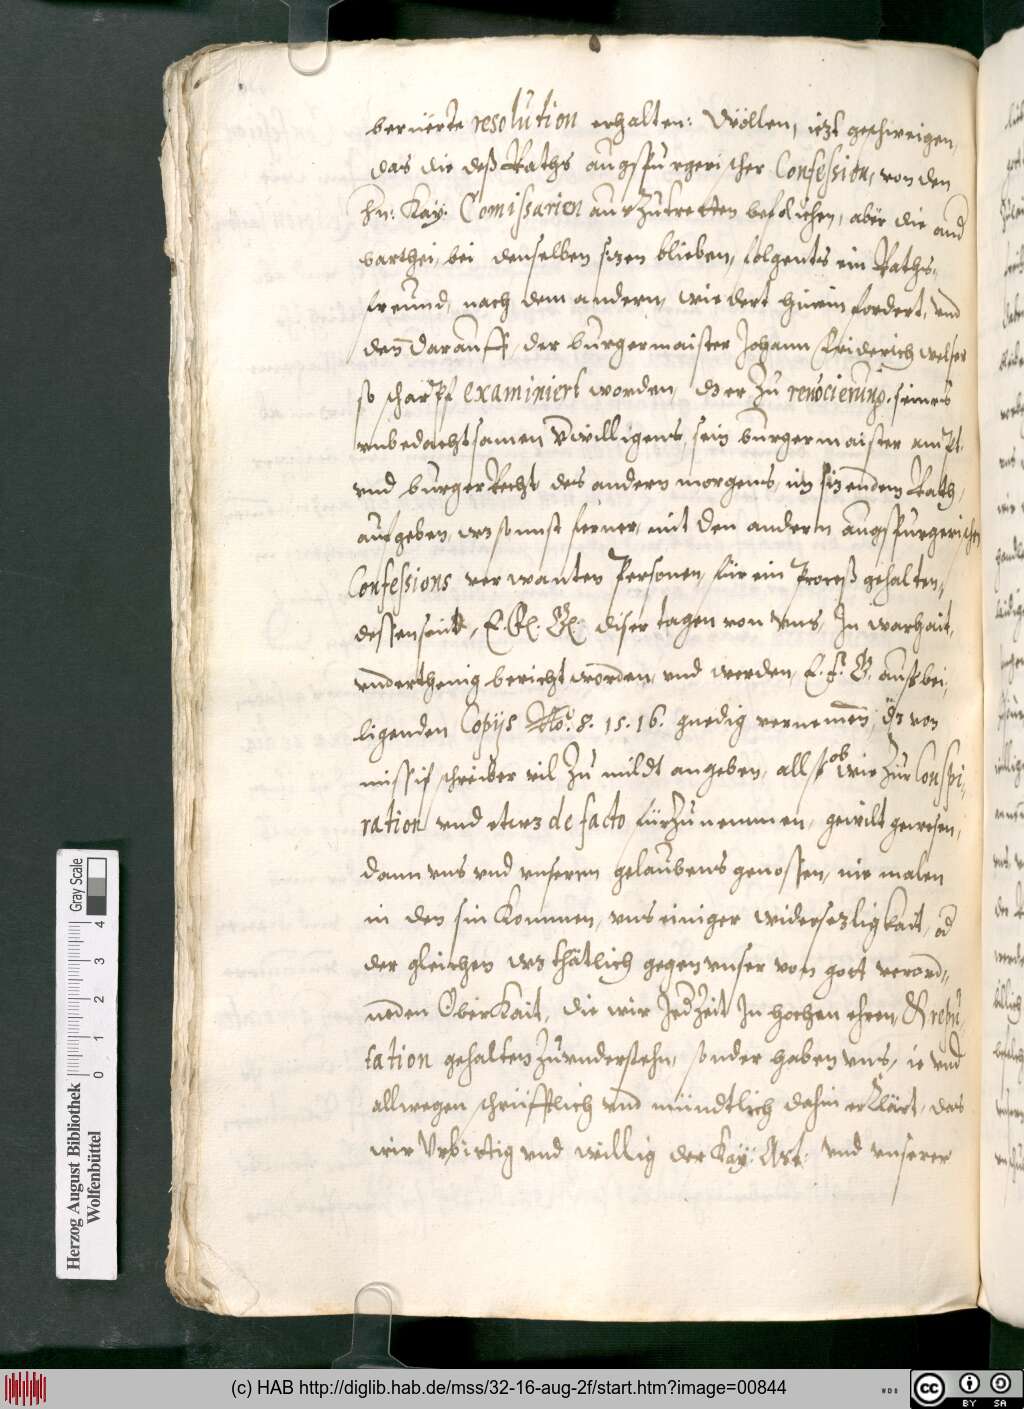 beruërte resolution erhalten: Wöllen, iezt geschweigen,
das die deß Raths augspurgerischer Confession, von den
hn: Kay: Comissarien auszutretten befolchen, aber die and
parthei, bei denselben sizen blieben, folgents ein Raths,
freund, nach dem andern, wie dert hinein fordert, und
den darauff, der burgermaister Johann Friderich welser
so scharpf examiniert worden, dz er zu revocierung seines
unbedachtsamen bewilligens, sein burgermaister ampt,
und burger Recht des andern morgens, in sizendem Rath,
aufgeben, wz sonnst ferner, mit den andern augspurgerischen
Confessions verwanten Personen, für ein Proceß gehalten,
dessen seind, E. Gn. diser tagen von uns, In warhait,
underthenig bericht worden, und werden, E. F. G. auß bei,
ligenden Copijs No: 8. 15. 16. gnedig vernemen, dz von
missif schreiber vil zu mildt angeben, allß ob wir zur Conspi,
ration und etwz de facto fürzunemmen, gewilt gewesen,
dann uns und unserm gelaubens genossen, nie malen
in den sin kommen, uns einiger widersezligkait, od
der gleichen wz thätlich gegen unser von gott verord,,
neten Oberkait, die wir Jedzeit In hochen ehren, & repu,
tation gehalten zu understehn, sonder haben uns, ie und
allwegen schrifftlich und mündtlich dahin erklärt, das
wir Urbiettig und willig der Kay: Mt: und unserer
Herzog August Bibliothek
Wolfenbüttel
Gray Scale
0 1 2 3 4
(c) HAB http://diglib.hab.de/mss/32-16-aug-2f/start.htm?image=00844
WDB
CC BY SA